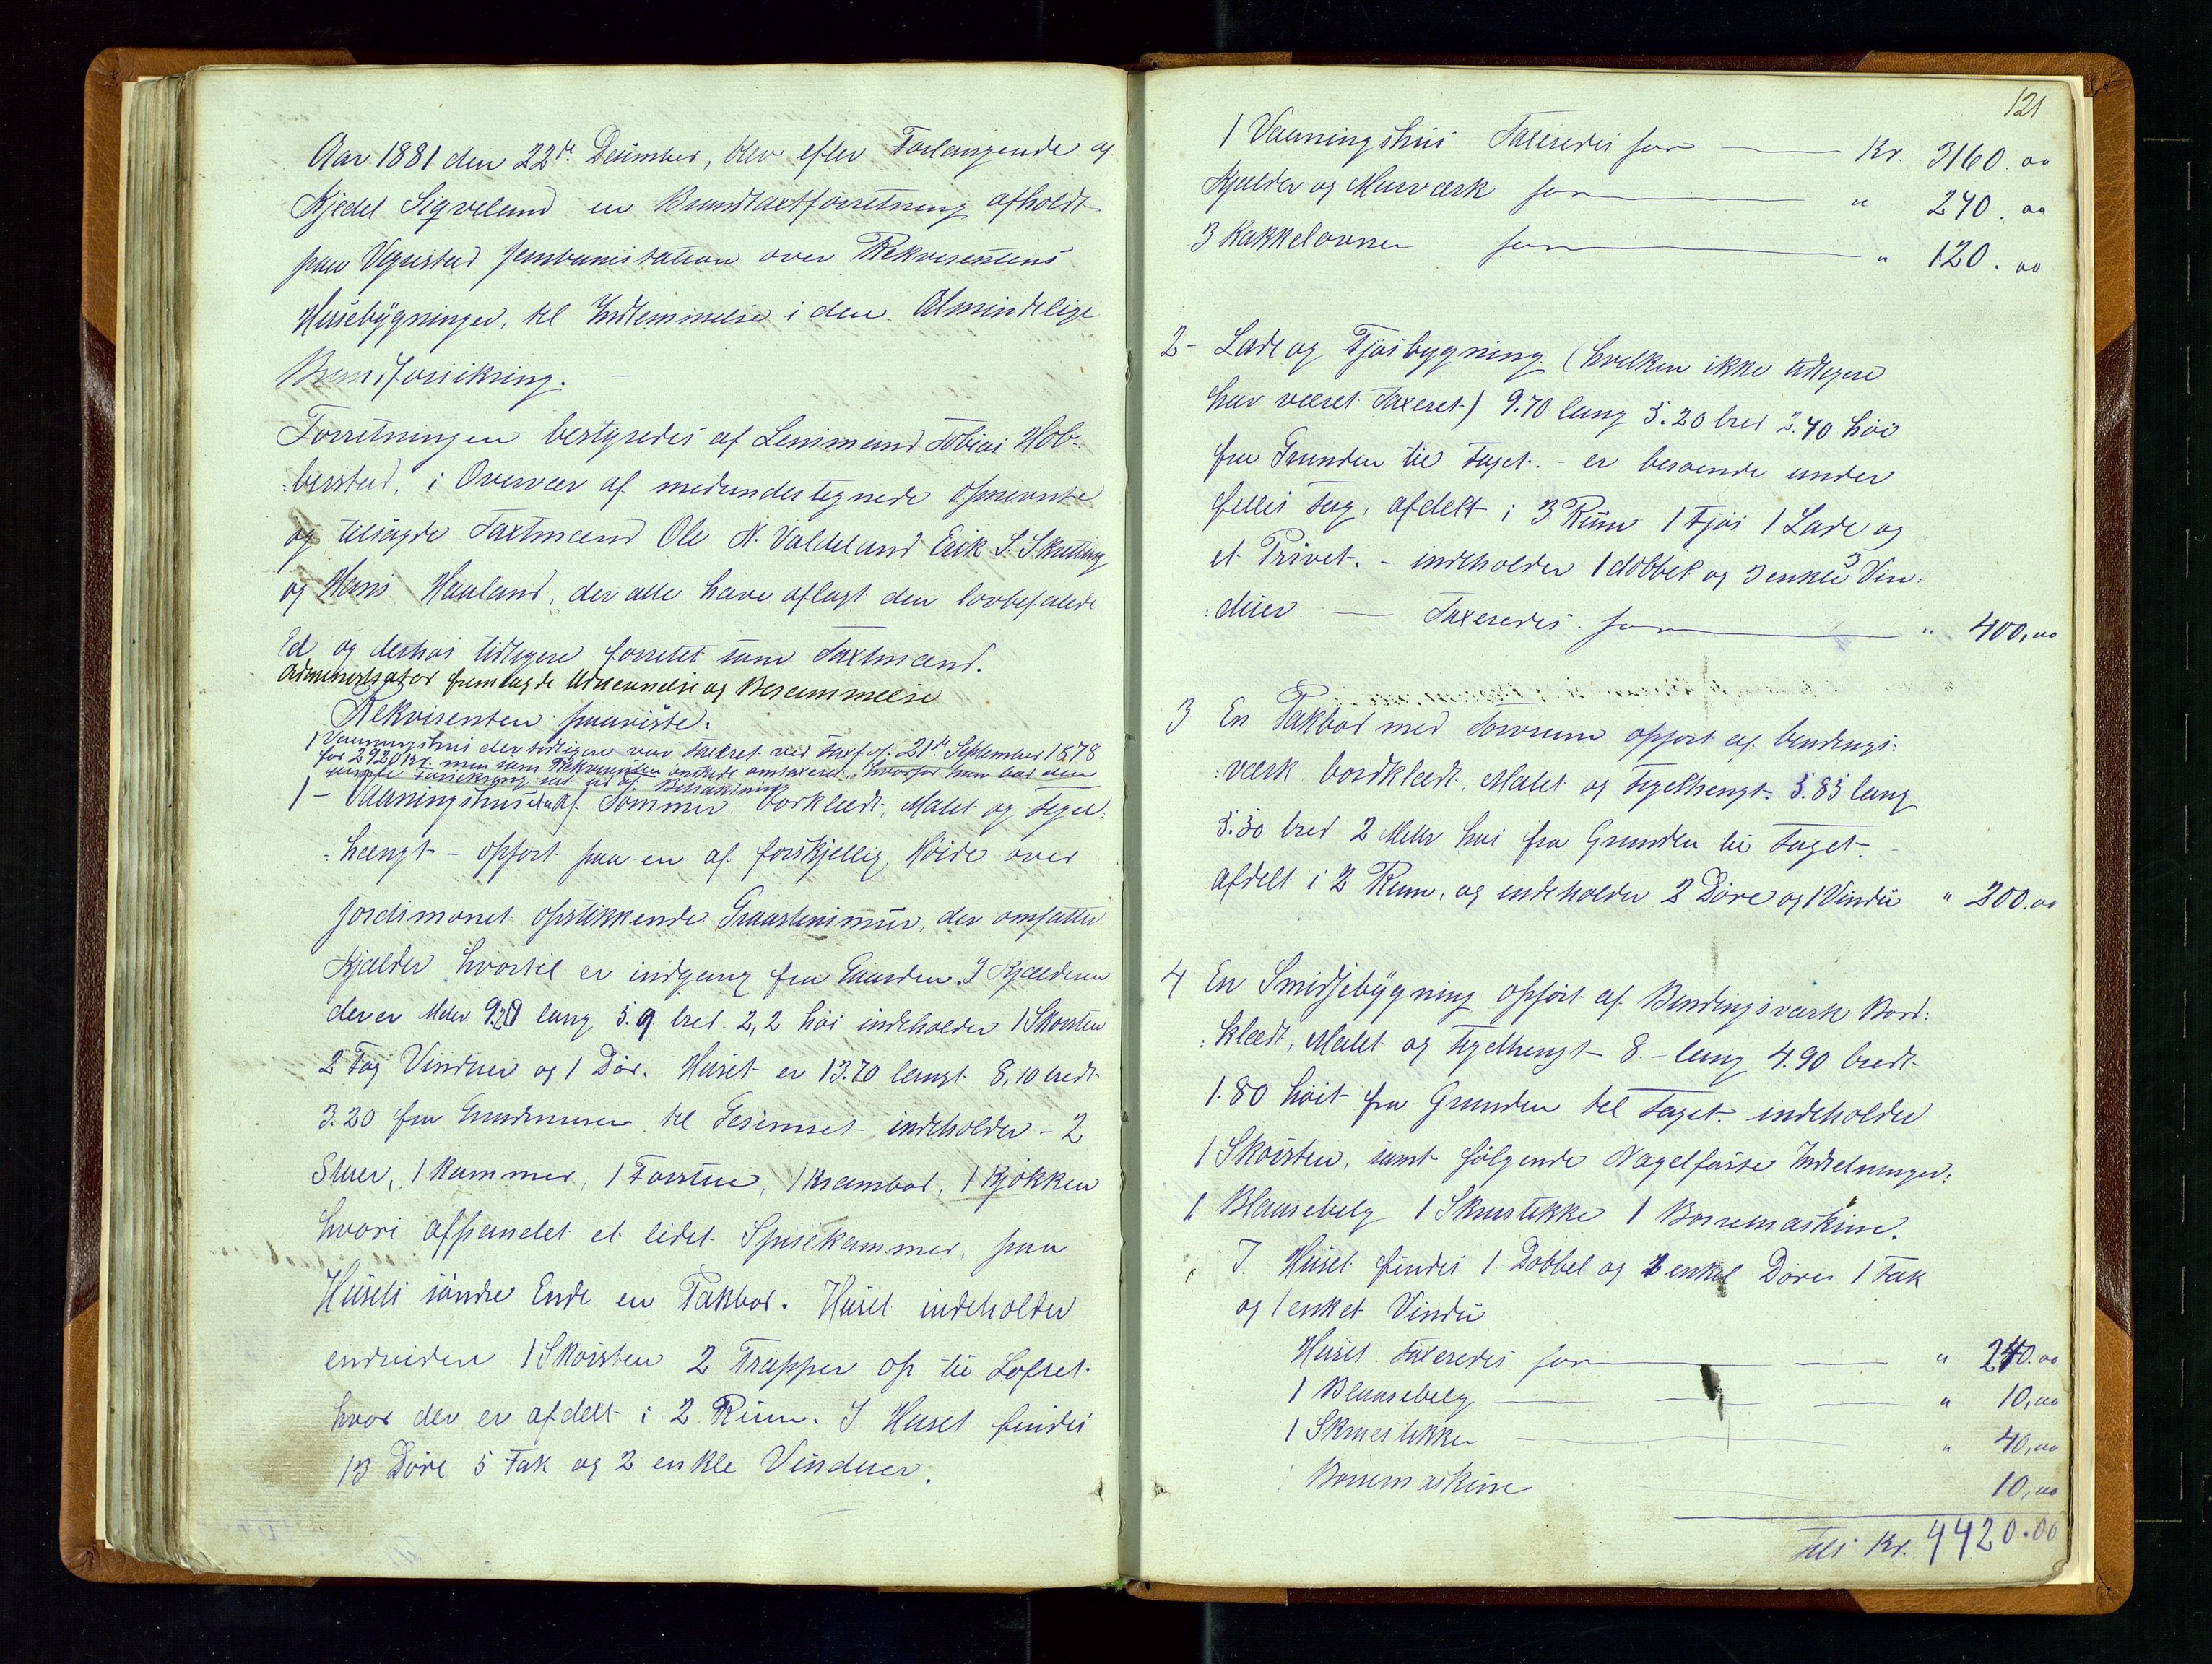 Aar 1881 den 22de December, blev efter Forlangende af
Kjedel Sigveland en Brandtaxtforretning afholdt
paa Vigrestad Jernbanestation over Rekvirentens
Husebygninger, til Indlemmelse i den Almindelige
Brandforsikring. —
Forretningen bestyredes af Lensmand Tobias Hob-
:berstad, i Overvær af medundertegnede opnævnte
og tilsagde Taxtmænd Ole N. Valdeland Erik S. Skretting
og Hans Haaland, der alle have aflagt den lovbefalede
Ed og derhos tidligere forrettet som Taxtmænd.
Administrator fremlagde Udnævnelse og Berammelse
Rekvirenten paaviste:
1 Vaaningshus der tidligere var taxeret ved Taxt af 21de September 1878
for 2920 Kr. men som Rekvirenten ønskede omtaxeret, hvorfor han bad den
gamle Forsikring sat ud af Betraktning
1 – Vaaningshuset af Tømmer bordklædt, Malet og Tegel:
:hængt – opført paa en af forskjellig Høide over
Jordsmonet opstikkende Graastensmur, der omfatter
Kjælder hvortil er indgang fra Gaarden. I Kjælderen
der er Meter 9.20 lang 5.9 bred 2,2 høi indeholder 1 Skorsten
2 Fag Vinduer og 1 Dør. Huset er 13.70 langt 8,10 bredt
3.20 fra Grundmuren til Gesimset indeholder – 2
Stuer, 1 Kammer, 1 Forstue, 1 Krambod, 1 Kjøkken
hvori afpanelet et lidet Spisekammer, paa
Husets søndre Ende en Pakbod. Huset indeholder
endvidere 1 Skorsten 2 Trapper op til Loftet
hvor der er afdelt i 2 Rum. I Huset findes
13 Døre 5 Fak og 2 enkle Vinduer.
121
1 Vaaningshus Taxeredes for — Kr. 3160.00
Kjælder og Murværk for — " 240.00
3 Kakkelovner for — " 120.00
2 – Lade og Fjøsbygning (hvilken ikke tidligere
har været Taxeret) 9.70 lang 5.20 bred 2.40 høi
fra Grunden til Taget. – er beroende under
fælles Tag, afdelt i 3 Rum 1 Fjøs 1 Lade og
et Privet. – indeholder 1 dobbel og 3 enkle Vin:
:duer — Taxeredes for — " 400,00
3 En Pakbod med Torvrum opført af bindings:
:værk bordklædt, Malet og Tegelhengt. 5.85 lang
5.50 bred 2 Meter høi fra Grunden til Taget.
afdelt i 2 Rum, og indeholder 2 Døre og 1 Vindu " 200.00
4 En Smidjebygning opført af Bindingsværk Bord:
:klædt, Malet og Tegelhengt – 8 – lang 4.90 bredt
1.80 høit fra Grunden til Taget. indeholder
1 Skorsten, samt følgende Nagelfaste Indretninger:
1 Blaasebelg 1 Skruestikke 1 Borremaskine.
I Huset findes 1 Dobbel og 1 enkel Døre 1 Fak
og 1 enket Vindu
Huset Taxeredes for — " 240.00
1 Blaasebelg — " 10,00
1 Skruestikke — " 40,00
1 Borremaskine 10,00
Tils Kr. 4420.00